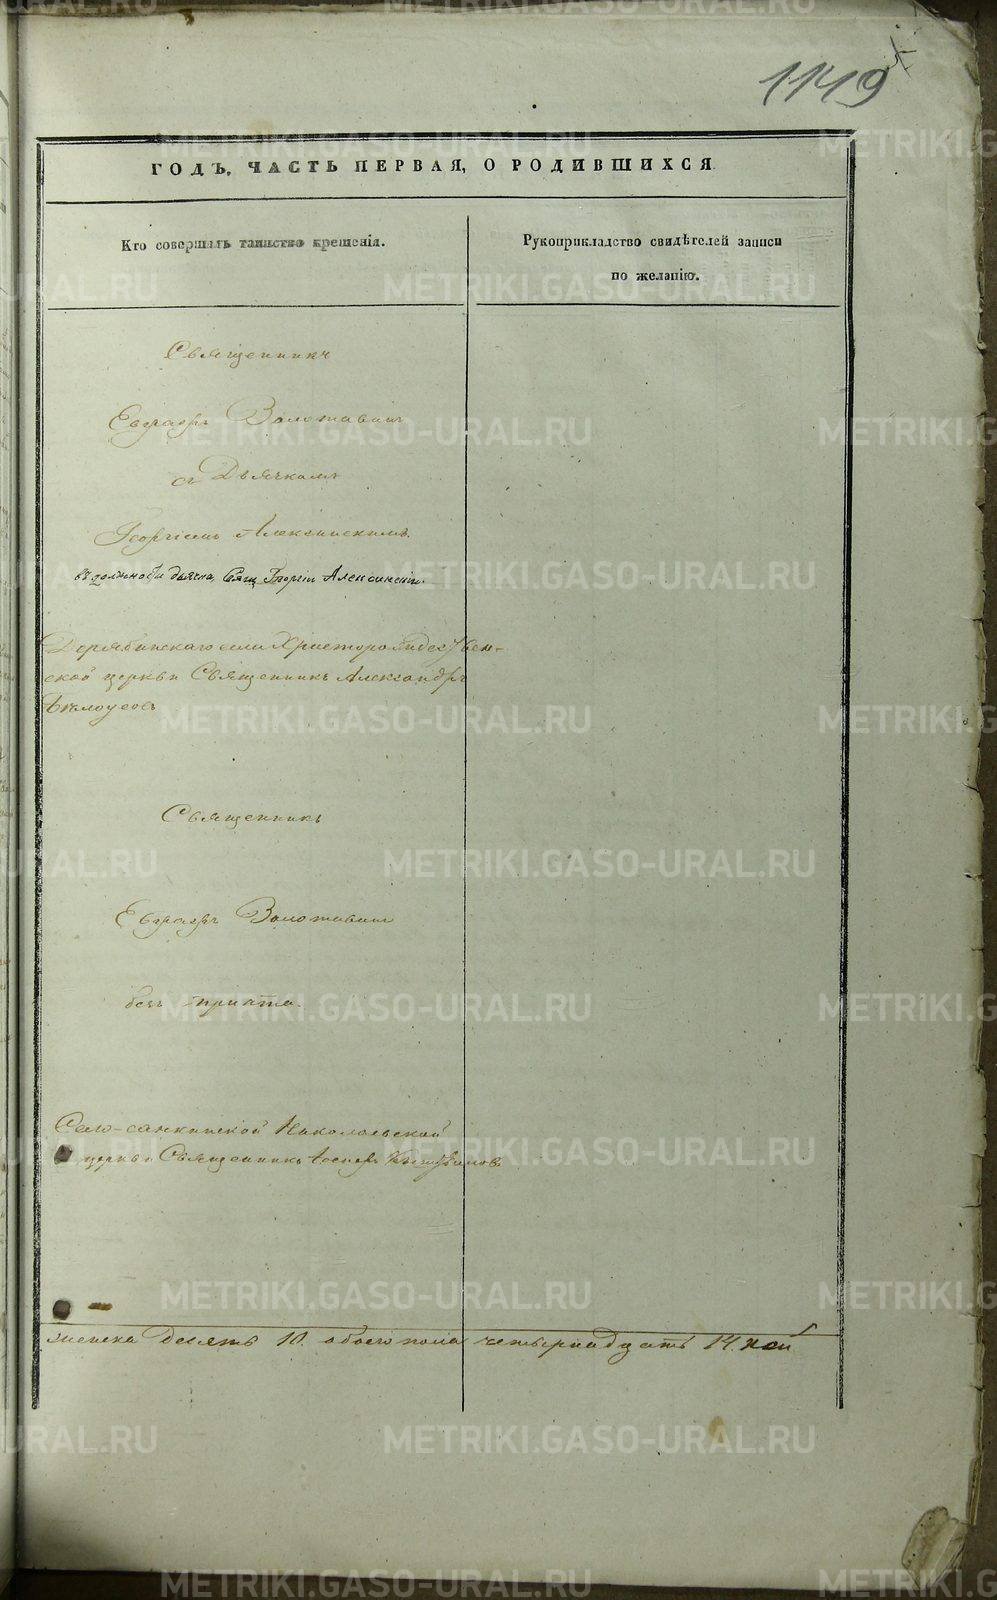 1149
ГОДЪ, ЧАСТЬ ПЕРВАЯ, О РОДИВШИХСЯ.
Кто совершалъ таинство крещенія.
Рукоприкладство свидѣтелей записи
по желанію.
Священникъ
Евграфъ Золотавинъ
съ Дьячкомъ
Георгіемъ Алексинскимъ.
въ должности дьячка, Свящ Георгій Алексинскій.
Дерябинскаго села Христорождествен-
ской церкви Священникъ Александръ
Бѣлоусовъ
Священникъ
Евграфъ Золотавинъ
безъ причта.
Салго-санкинской Николаевской
церкви Священникъ
женска десять 10. обоего пола четырнадцать 14.
METRIKI.GASO-URAL.RU